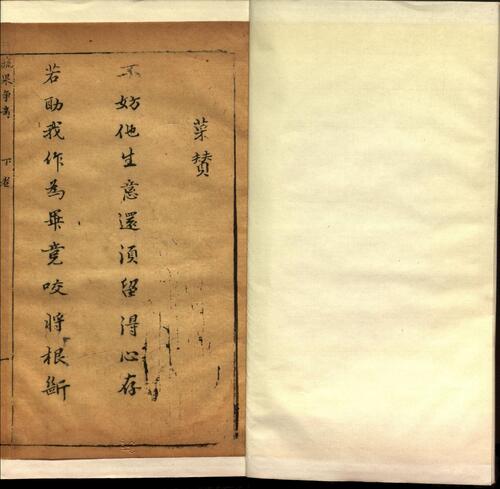 菜賛
不妨他生意還須留得心存
若助我作為畢竟咬將根斷
蔬果爭奇 下卷